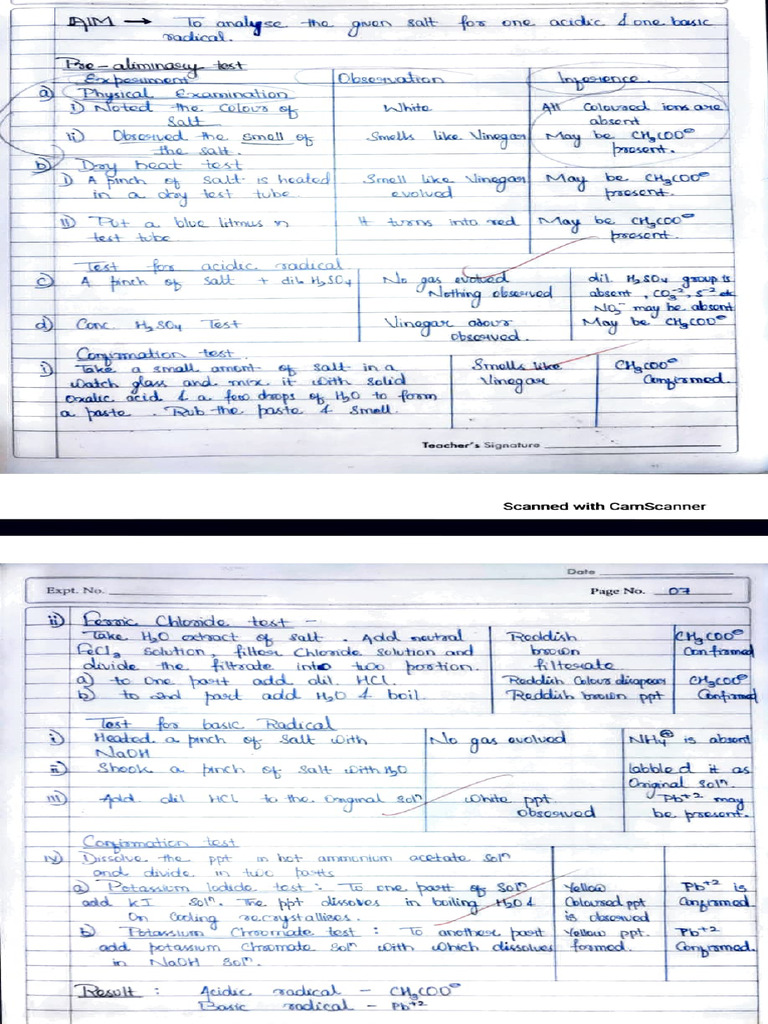 AIM → To analyse the given salt for one acidic & one basic
radical.
Pre-aliminary test
Experiment Observation Inference.
a) Physical Examination
i) Noted the colour of White All coloured ions are
salt absent
ii) Observed the smell of Smells like Vinegar May be CH₃COO⊖
the salt. present.
b) Dry heat test
i) A pinch of salt is heated Smell like Vinegar May be CH₃COO⊖
in a dry test tube. evolved present.
ii) Put a blue litmus in It turns into red May be CH₃COO⊖
test tube present.
Test for acidic radical
c) A pinch of salt + dil. H₂SO₄ No gas evolved dil. H₂SO₄ group is
Nothing observed absent, CO₃⁻², S⁻² etc
NO₂⁻ may be absent
d) Conc. H₂SO₄ Test Vinegar odour May be CH₃COO⊖
observed.
Confirmation test.
i) Take a small amont of salt in a Smells like CH₃COO⊖
watch glass and mix it with solid Vinegar Confirmed.
oxalic acid & a few drops of H₂O to form
a paste. Rub the paste & smell.
Teacher's Signature
Scanned with CamScanner
Date
Expt. No. Page No. 07
ii) Ferric Chloride test -
Take H₂O extract of salt. Add neutral Reddish CH₃COO⊖
FeCl₃ solution, filter chloride solution and brown Confirmed
divide the filtrate into two portion. filterate
a) to one part add dil. HCl. Reddish Colour disapear CH₃COO⊖
b) to 2nd part add H₂O & boil. Reddish brown ppt Confirmed
Test for basic Radical
i) Heated a pinch of salt with No gas evolved NH₄⊕ is absent
NaOH
ii) Shook a pinch of salt with H₂O labbled it as
Original solⁿ.
iii) Add dil HCl to the Original solⁿ White ppt Pb⁺² may
observed be present.
Confirmation test
iv) Dissolve the ppt in hot ammonium acetate solⁿ
and divide in two parts
a) Potassium Iodide test : To one part of solⁿ Yellow Pb⁺² is
add KI solⁿ. The ppt dissolves in boiling H₂O & Coloured ppt Confirmed
on cooling recrystallises. is observed
b) Potassium Chromate test : To another part Yellow ppt. Pb⁺²
add potassium chromate solⁿ with which dissolves formed. Confirmed.
in NaOH solⁿ.
Result : Acidic radical - CH₃COO⊖
Basic radical - Pb⁺²